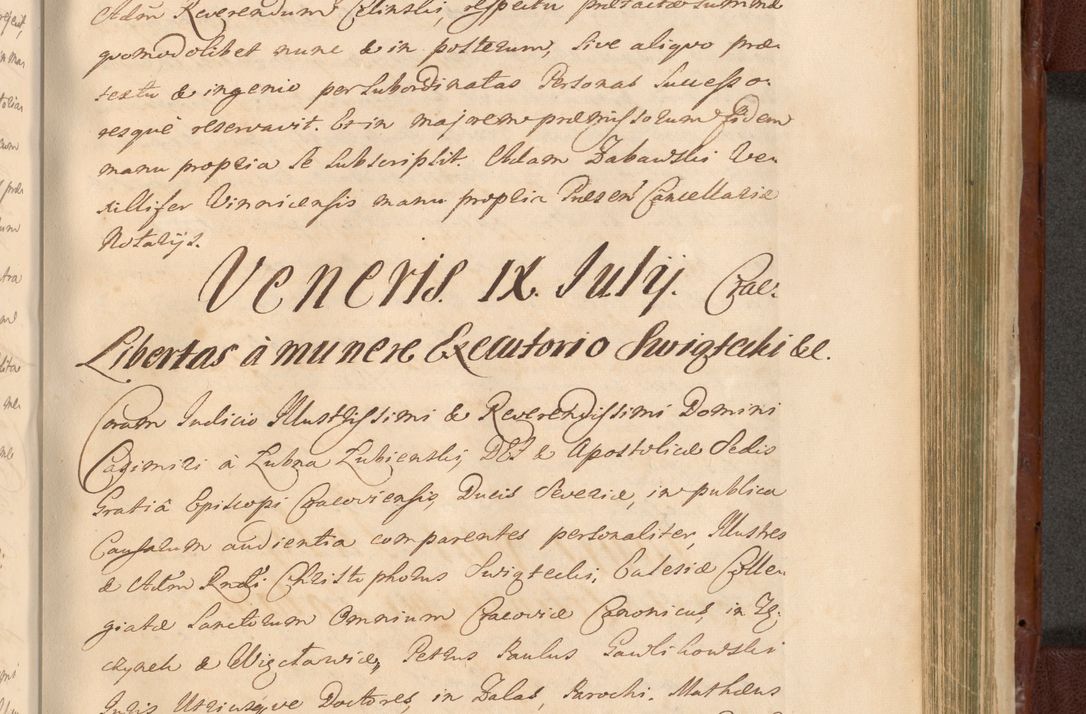 Adm Reverendum Celinski, respectu præfactæ summæ
quomodolibet nunc & in posterum, sive aliquo præ-
textu & ingenio per subordinatas Personas Successo-
resque reservavit. Et in majrem præmissorum fidem
manu propria se subscripsit. Adam Zabawski Ve-
xillifer Winnicensis manu propria Præsen Cancellariæ
Notarijs.
Veneris. IX. Julij. Crac:
Libertas à munere Execcutorio Swigtecki &c.
Coram Judicio Illustrissimi & Reverendissimi Domini
Casimiri à Lubna Lubienski, DEI & Apostolicæ Sedis
Gratiâ Episcopi Cracoviensis, Ducis Severiæ, in publica
Causarum audientia comparentes personaliter, Illustres
& Adm Rndi Christophorus Swigtecki, Eclesiæ Colle-
giatæ Sanctorum Omnium Cracoviæ Canonicus, in
& Petrus Paulus Gawlikowski
Juris Utriusque Doctores, in Zalas, Parochi, Mathæus